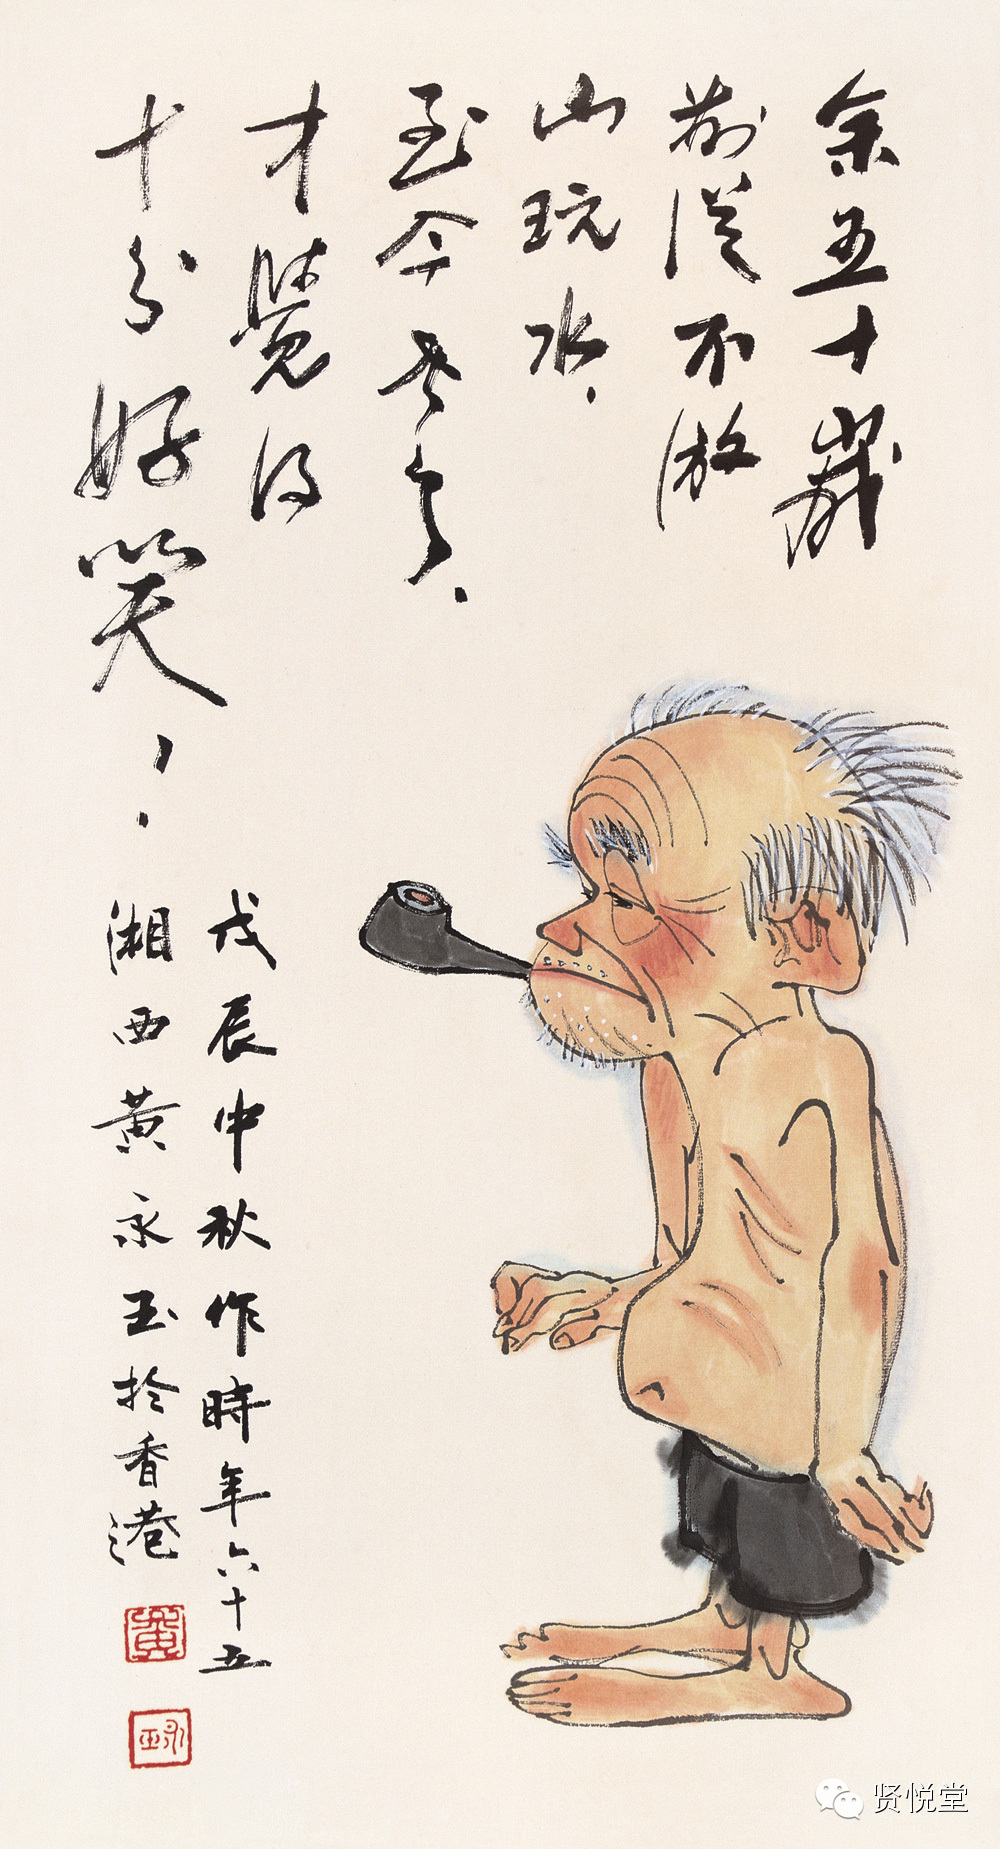 余五十歲
前從不游
山玩水、
至今
才覺得
十分好笑，
戊辰中秋作時年六十五
湘西黄永玉於香港
黄
永玉
贤悦堂